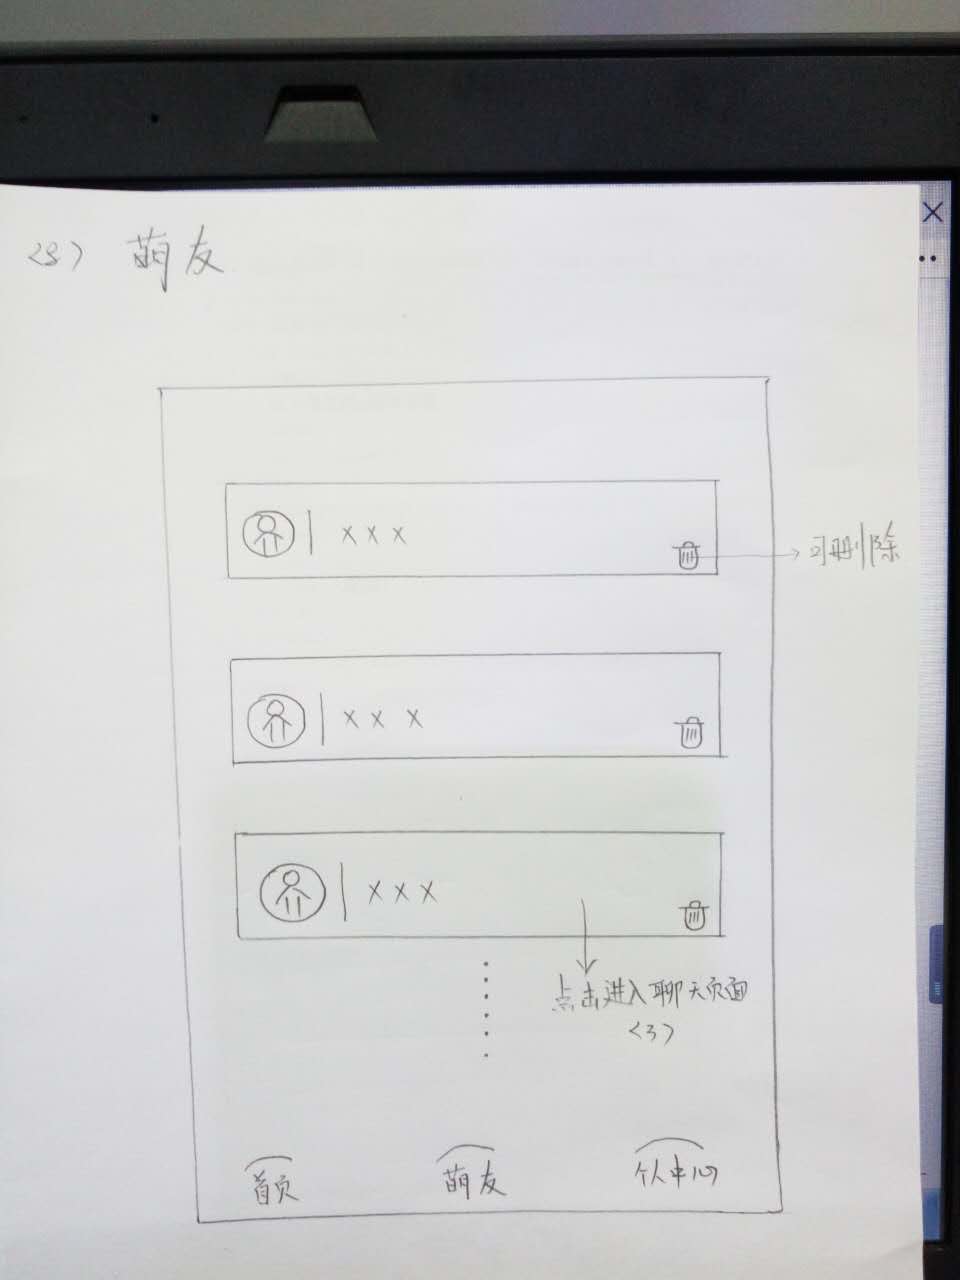 <8> 萌友
| x x x
可删除
| x x x
| x x x
点击进入聊天页面
<3>
首页 萌友 个人中心